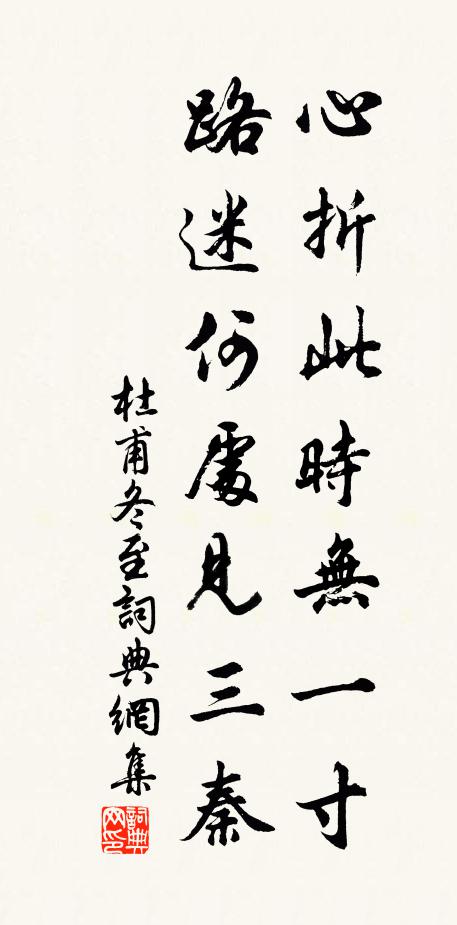 心折此時無一寸
路迷何處見三秦
杜甫冬至詞典網集
詞典网印